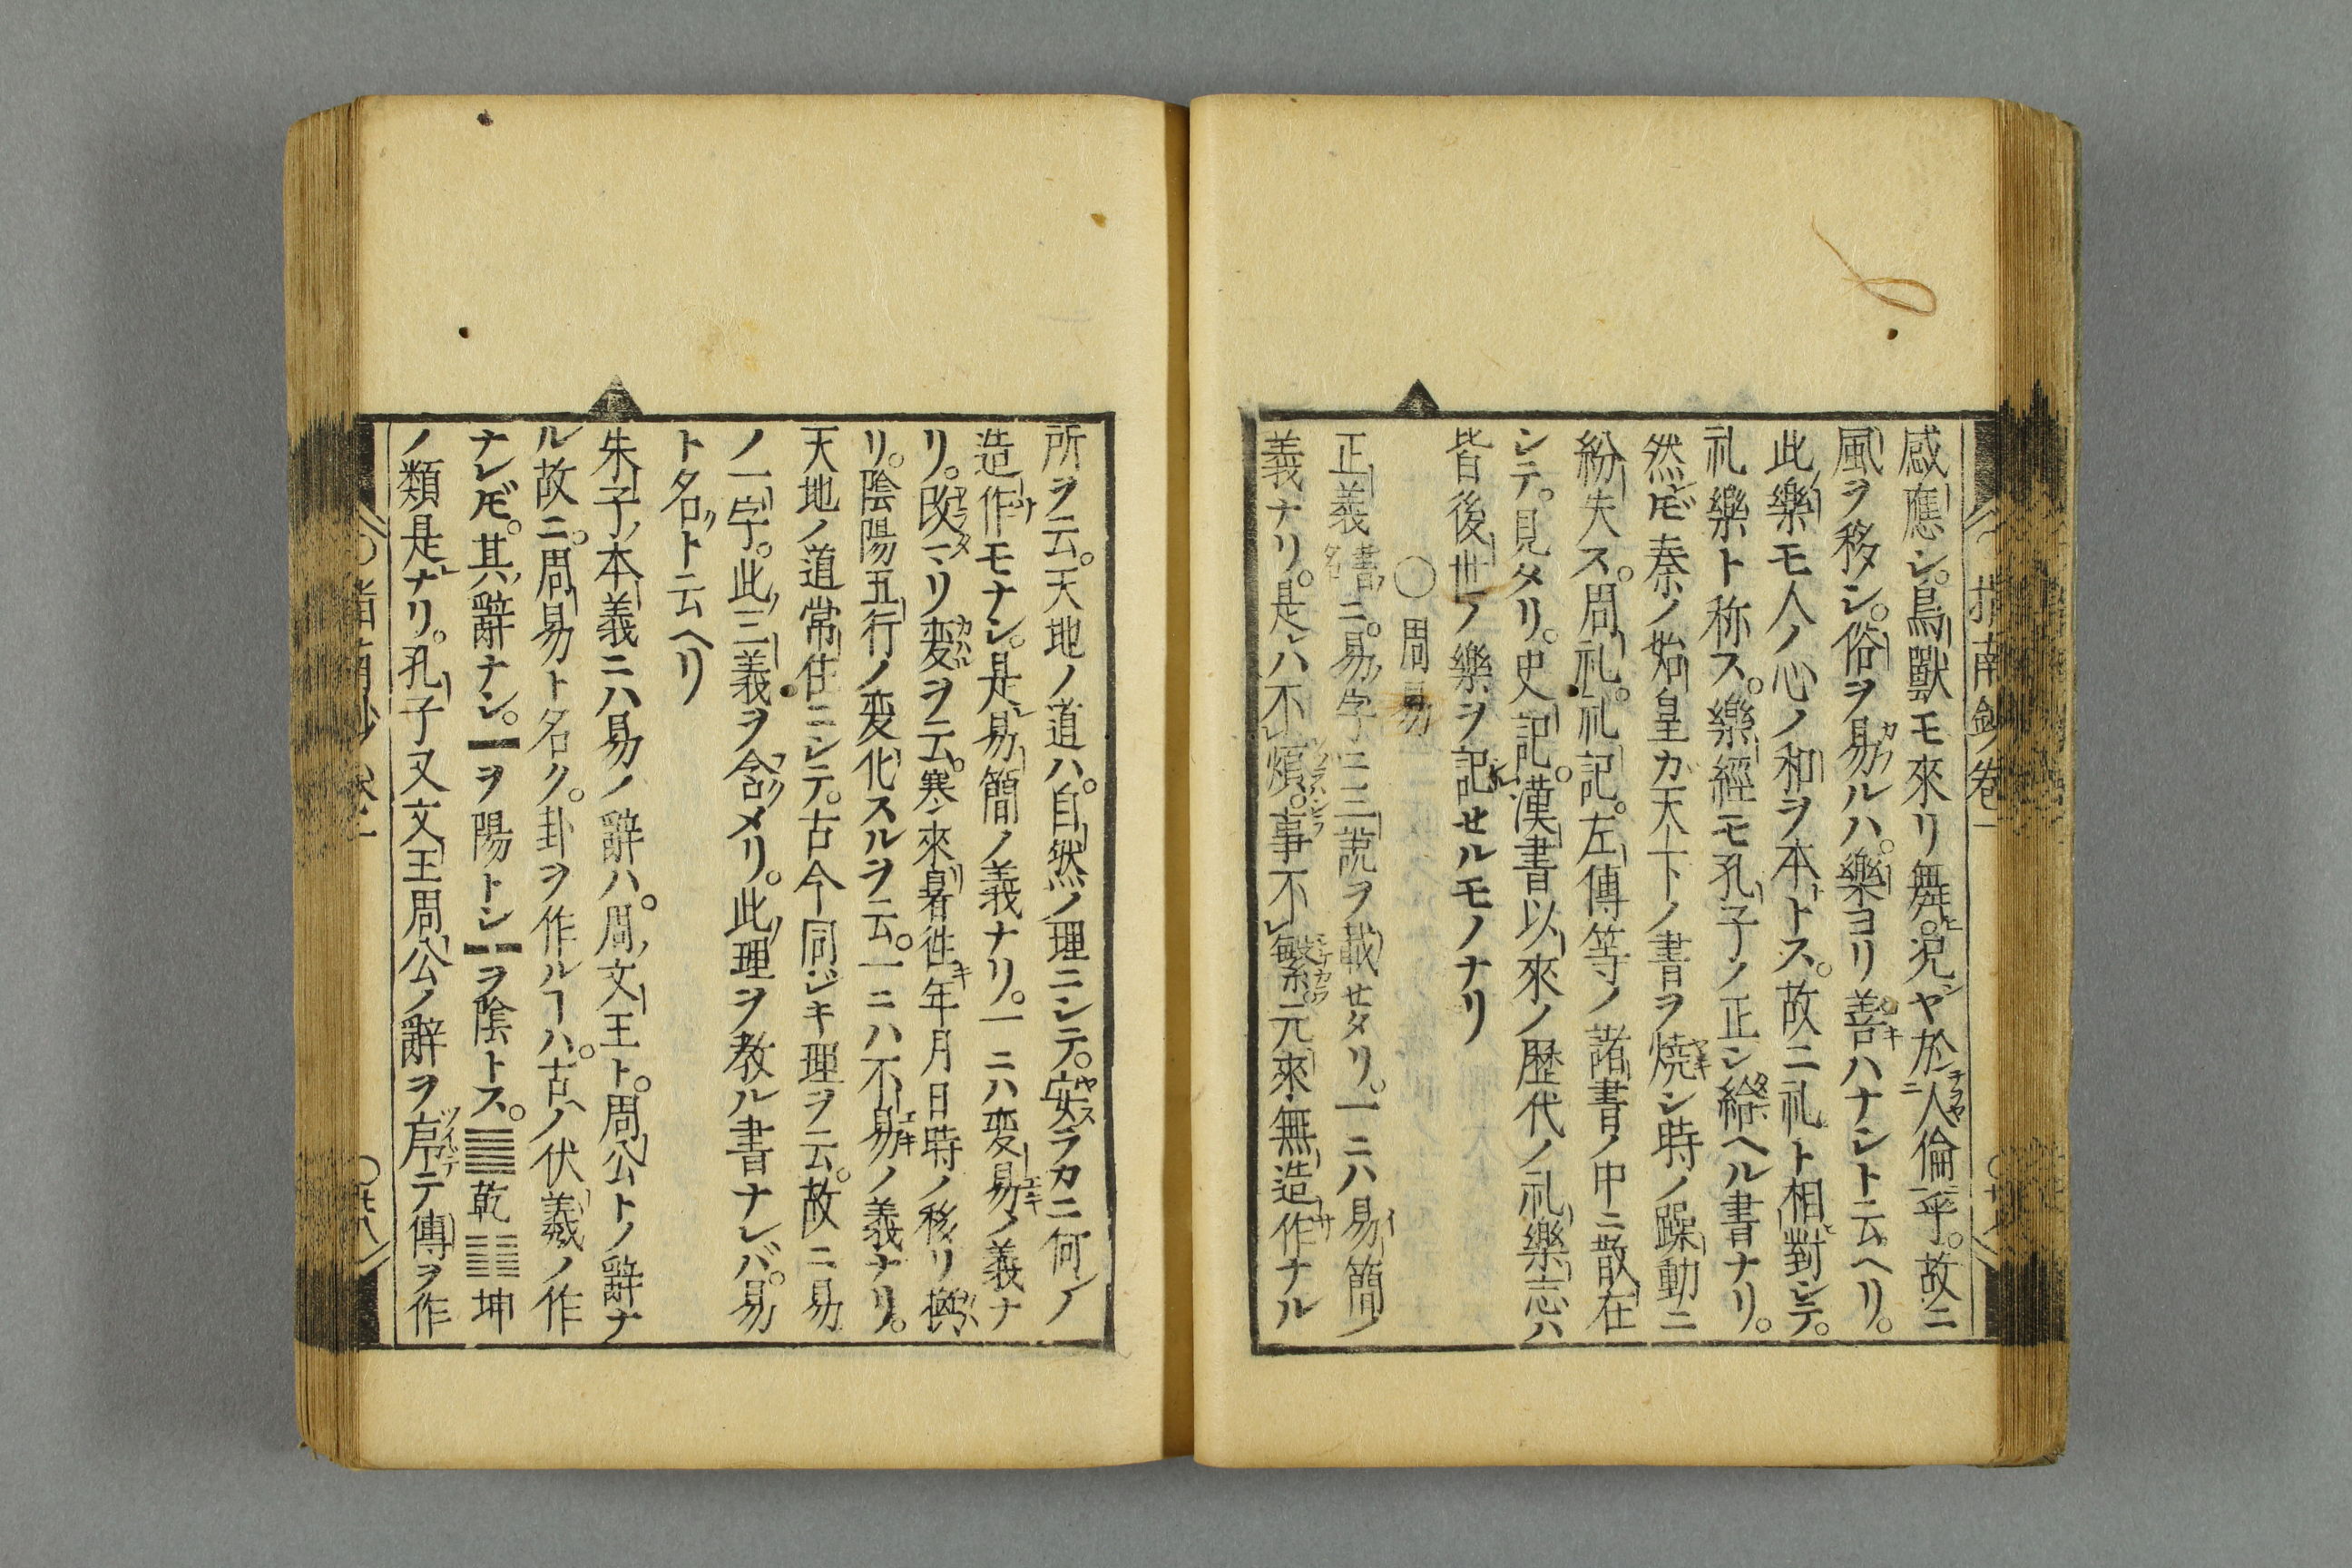 指南鈔卷一
感應シ。鳥獸モ來リ舞。况ヤ於人倫乎。故ニ
風ヲ移シ。俗ヲ易ルハ。樂ヨリ善ハナシト云ヘリ。
此樂モ人ノ心ノ和ヲ本トス。故ニ礼ト相對シテ。
礼樂ト称ス。樂經モ孔子ノ正シ給ヘル書ナリ。
然レ𪜈秦ノ始皇ガ天下ノ書ヲ燒シ時ノ躁動ニ
紛失ス。周礼。礼記。左傳等ノ諸書ノ中ニ散在
シテ。見タリ。史記。漢書以來ノ歴代ノ礼樂志ハ
皆後世ノ樂ヲ記せルモノナリ
〇周易
正義書名ニ。易字ニ三說ヲ載せタリ。一ニハ易簡ノ
義ナリ。是レハ不レ煩。事不レ繁。元來無造作ナル
所ヲ云。天地ノ道ハ。自然ノ理ニシテ。安ラカニ何ノ
造作モナシ。是易簡ノ義ナリ。一ニハ変易ノ義ナ
リ。改マリ変ヲ云。寒來暑徃年月日時ノ移リ
リ。陰陽五行ノ変化スルヲ云。一ニハ不易ノ義ナリ。
天地ノ道常住ニシテ。古今同ジキ理ヲ云。故ニ易
ノ一字。此三義ヲ含メリ。此理ヲ教ル書ナレバ。易
ト名ト云ヘリ
朱子本義ニハ易ノ辭ハ。周ノ文王ト。周公トノ辭ナ
ル故ニ。周易ト名ク。卦ヲ作ルヿハ。古ノ伏羲ノ作
ナレ𪜈。其辭ナシ。⚊ヲ陽トシ⚋ヲ陰トス。䷀乾䷁坤
ノ類是ナリ。孔子又文王周公ノ辭ヲ序テ傳ヲ作